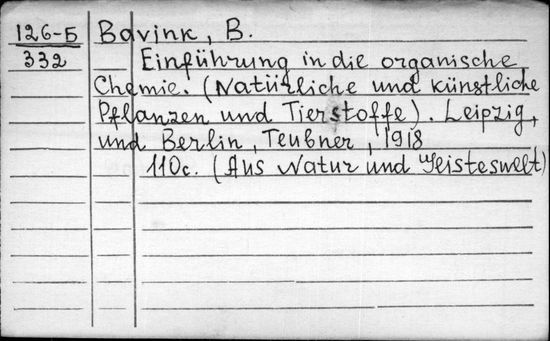 126-Б Bavink, B.
332 Einführung in die organische
Chemie. (Natürliche und künstliche
Pflanzen und Tierstoffe). Leipzig,
und Berlin, Teubner, 1918
110c. (Aus Natur und Geisteswelt)